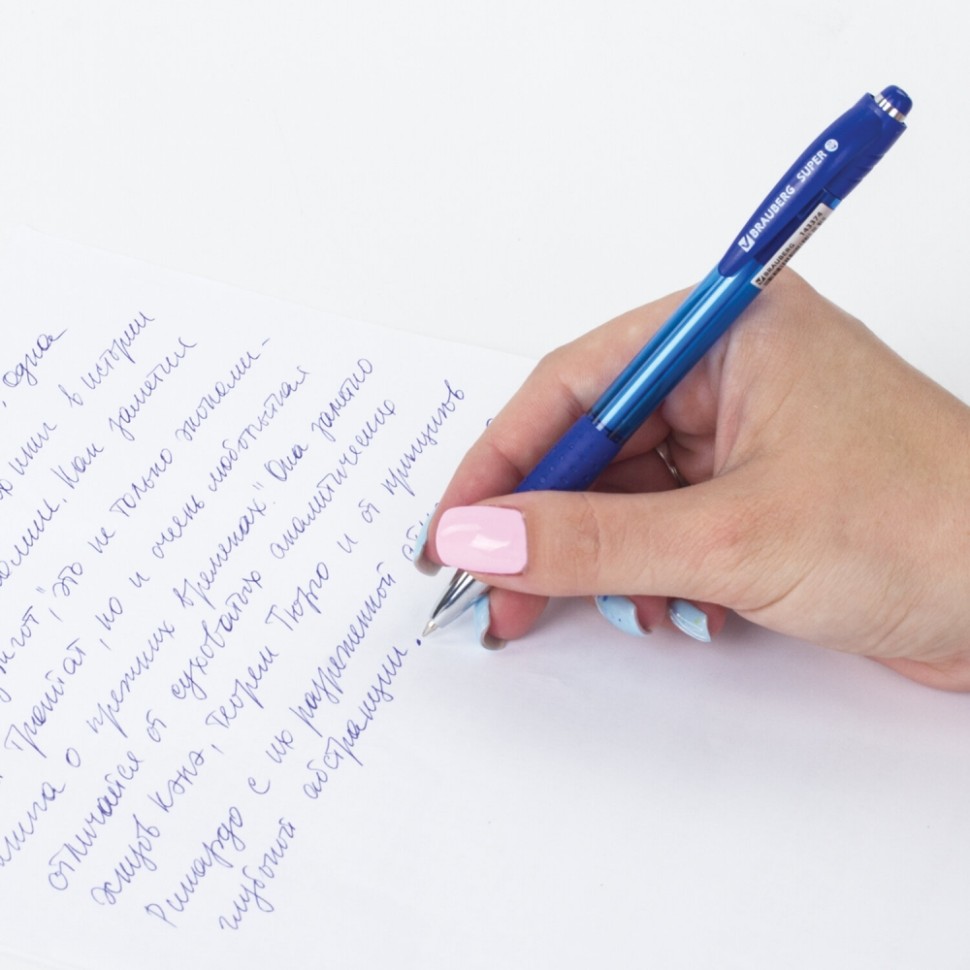 одна
в истории
. Как заметил
", это не только экономи-
Трактат, но и очень любопытная
книга о прежних временах." Она заметно
отличается от суховатых аналитических
эскизов Кэнэ, теорем Тюрго и от принципов
Рикардо с их разреженной
глубокой абстракции.
BRAUBERG SUPER
BRAUBERG 143374